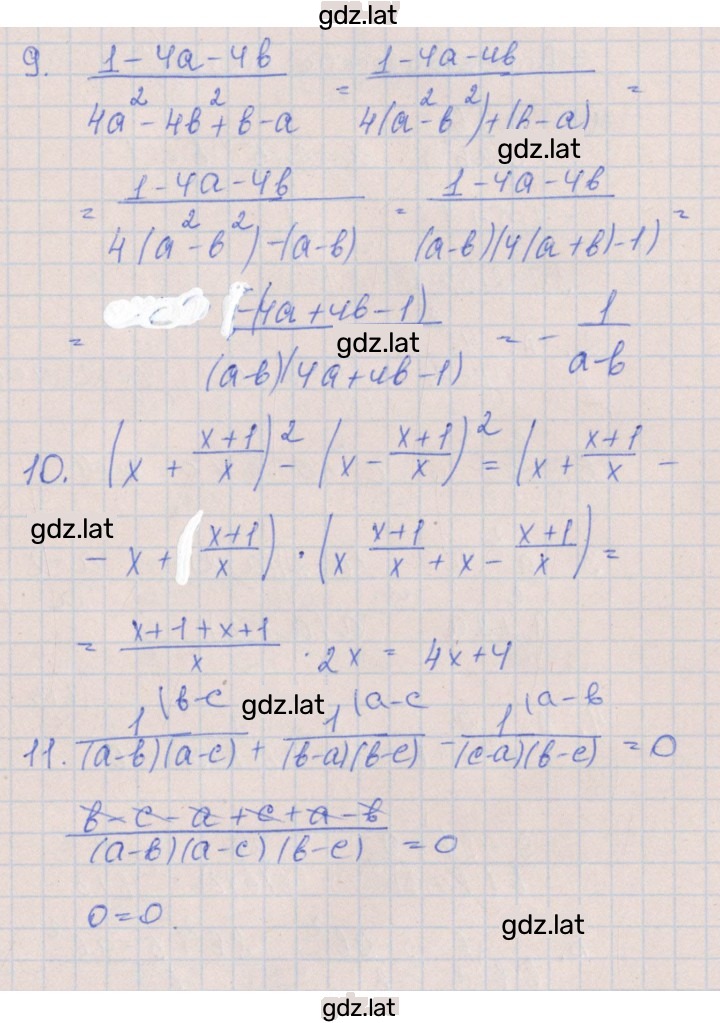 gdz.lat
9. (1-4a-4b)/(4a²-4b²+b-a) = (1-4a-4b)/(4(a²-b²)+(b-a)) =
gdz.lat
= (1-4a-4b)/(4(a²-b²)-(a-b)) = (1-4a-4b)/((a-b)(4(a+b)-1)) =
= (-(4a+4b-1))/((a-b)(4a+4b-1)) = - 1/(a-b)
gdz.lat
10. (x + (x+1)/x)² - (x - (x+1)/x)² = (x + (x+1)/x -
gdz.lat
- x + (x+1)/x) · (x (x+1)/x + x - (x+1)/x) =
= (x+1+x+1)/x · 2x = 4x+4
gdz.lat
11. 1\b-c/((a-b)(a-c)) + 1\a-c/((b-a)(b-c)) - 1\a-b/((c-a)(b-c)) = 0
(b-c-a+c+a-b)/((a-b)(a-c)(b-c)) = 0
0=0.
gdz.lat
gdz.lat